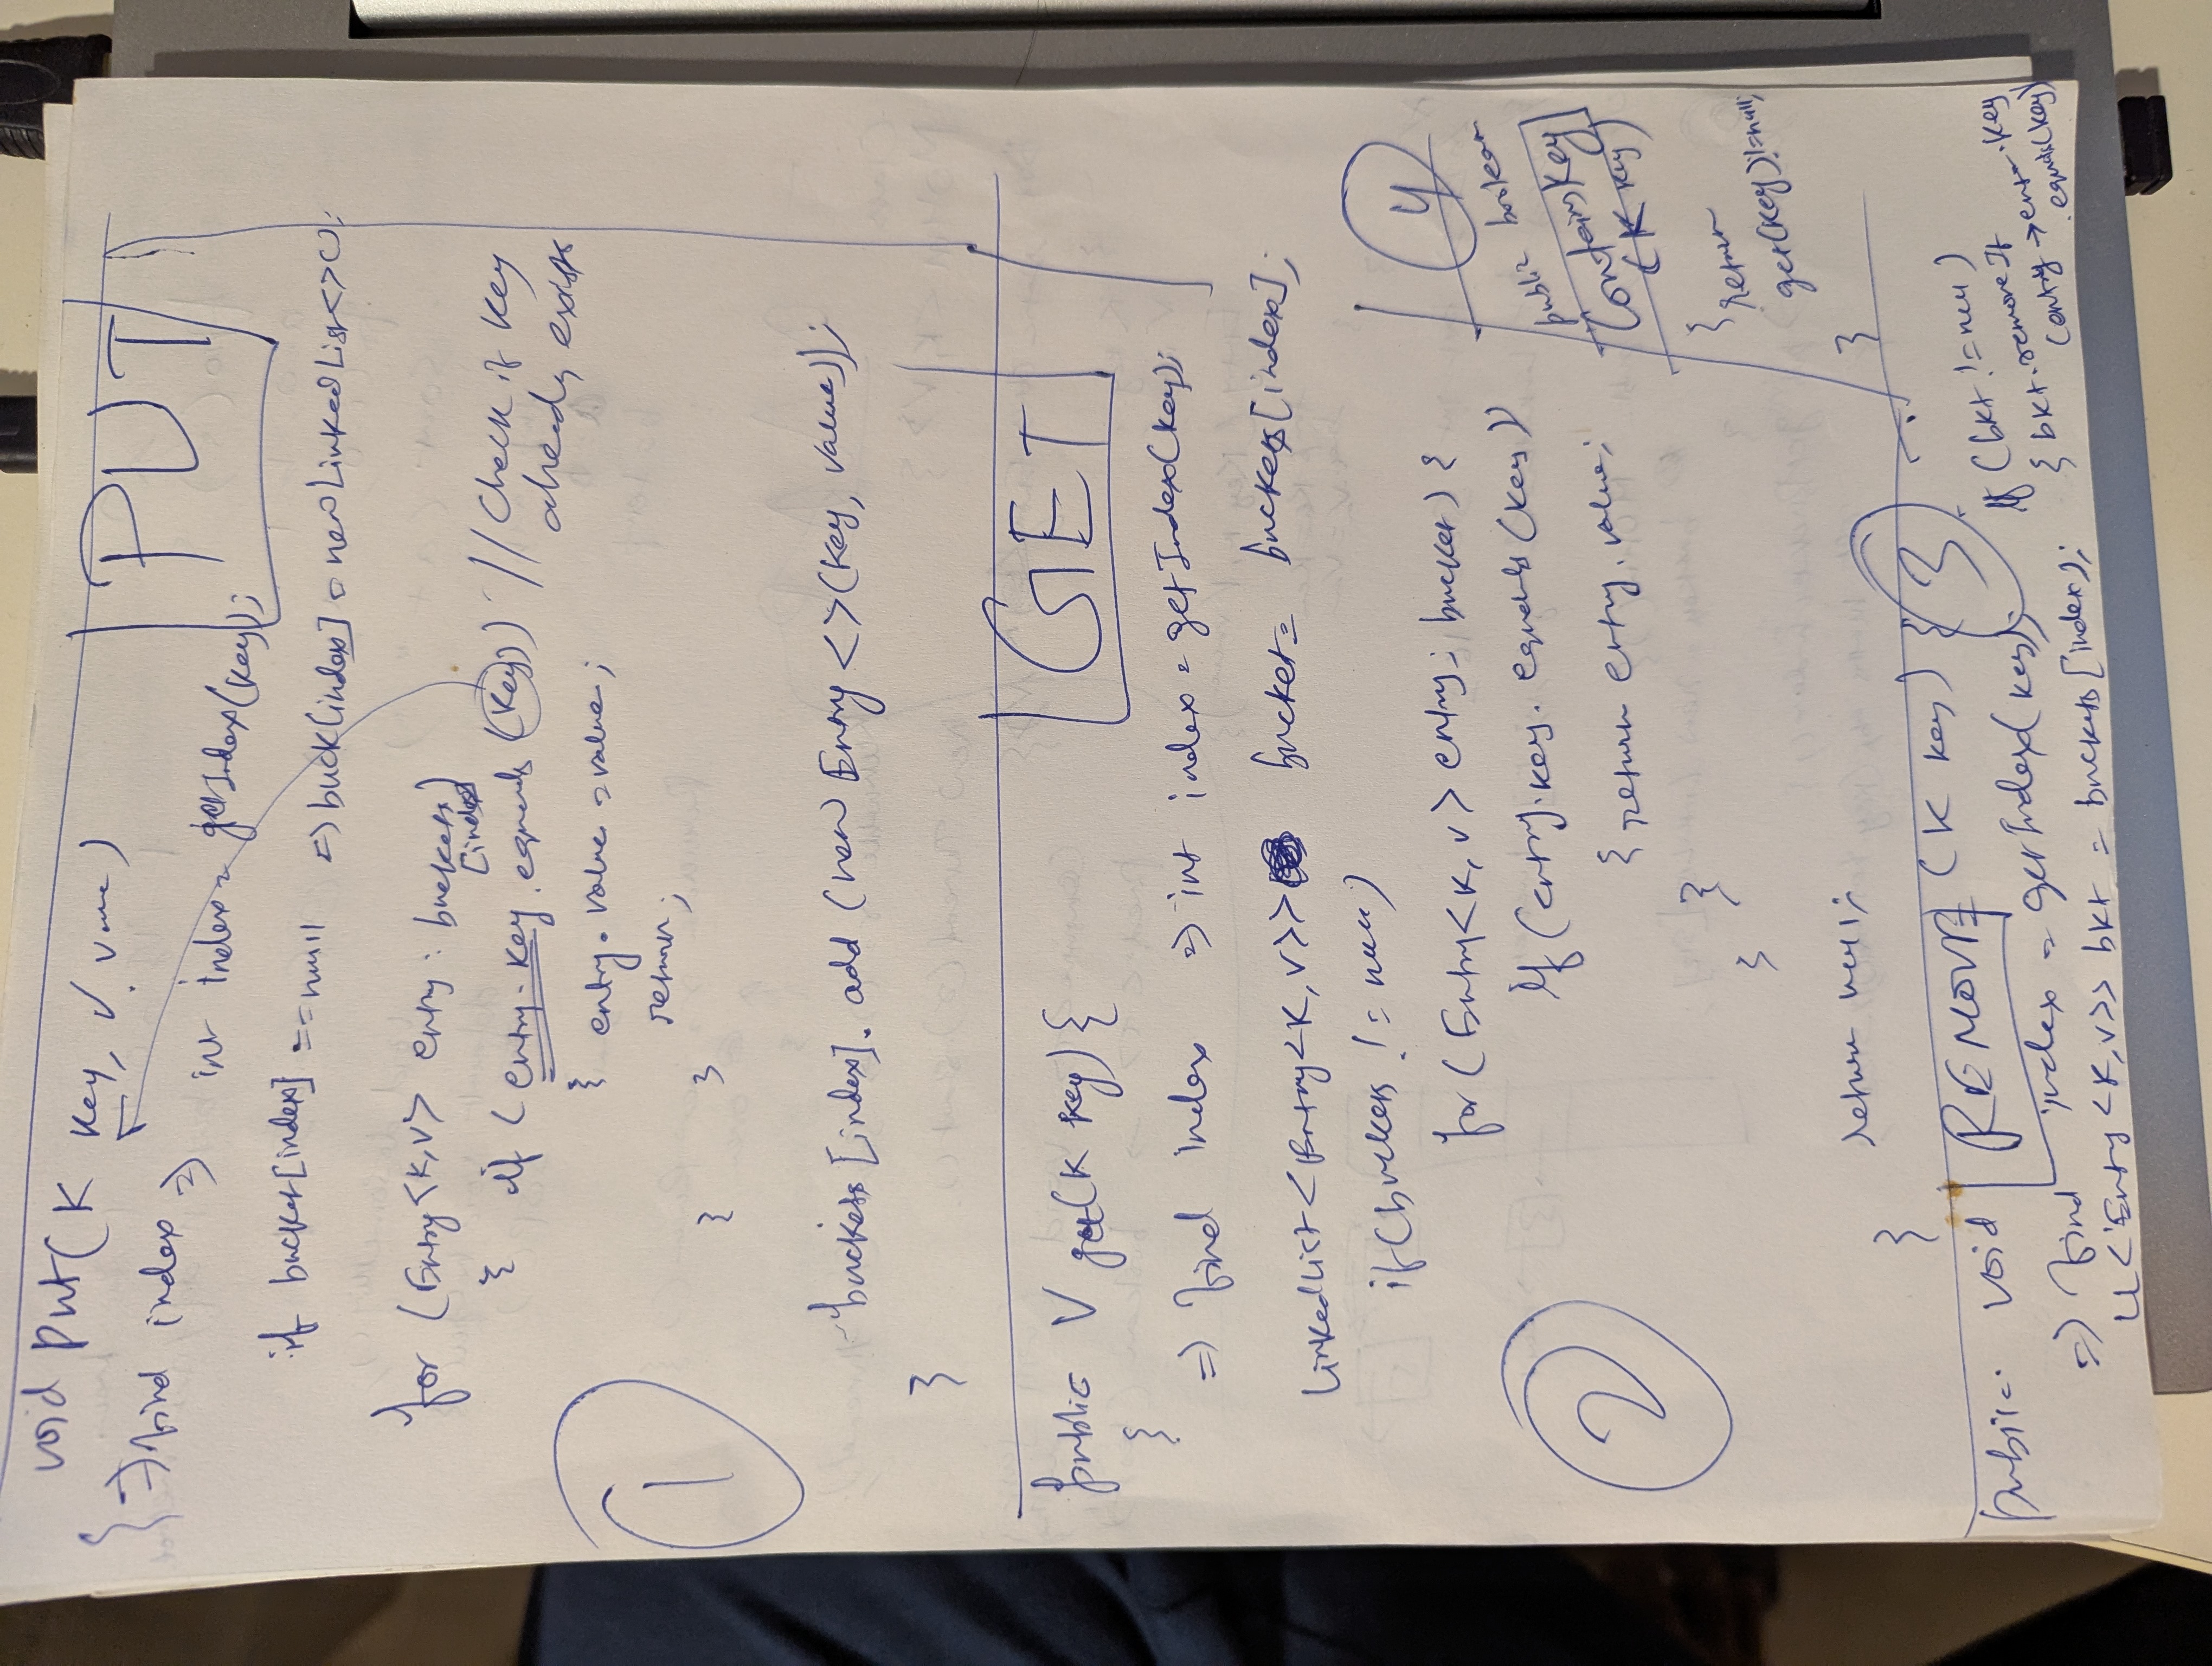 void put(K key, V value)
PUT
{ => find index => int index = getIndex(key);
if bucket[index] == null => buck[index] = new LinkedList<>();
for (Entry<K,V> entry : buckets
[index]
)
{ if (entry.key.equals(key)) // Check if key
already exists
{ entry.value = value;
return;
} }
1
buckets[index].add(new Entry<>(key, value));
}
GET
public V get(K key){
{
=> find index => int index = getIndex(key);
LinkedList<Entry<K,V>> bucket = buckets[index];
if(buckets != null)
for(Entry<K,V> entry : bucket) {
if(entry.key.equals(key))
{ return entry.value;
}
}
2
return null;
}
4
public boolean
ContainsKey
(K key)
{ return
get(key) != null;
}
public void REMOVE (K key) {
3
=> find index = getIndex(key);
LL<Entry<K,V>> bkt = buckets[index];
if (bkt != null)
{ bkt.removeIf
(entry → entry.key
.equals(key)